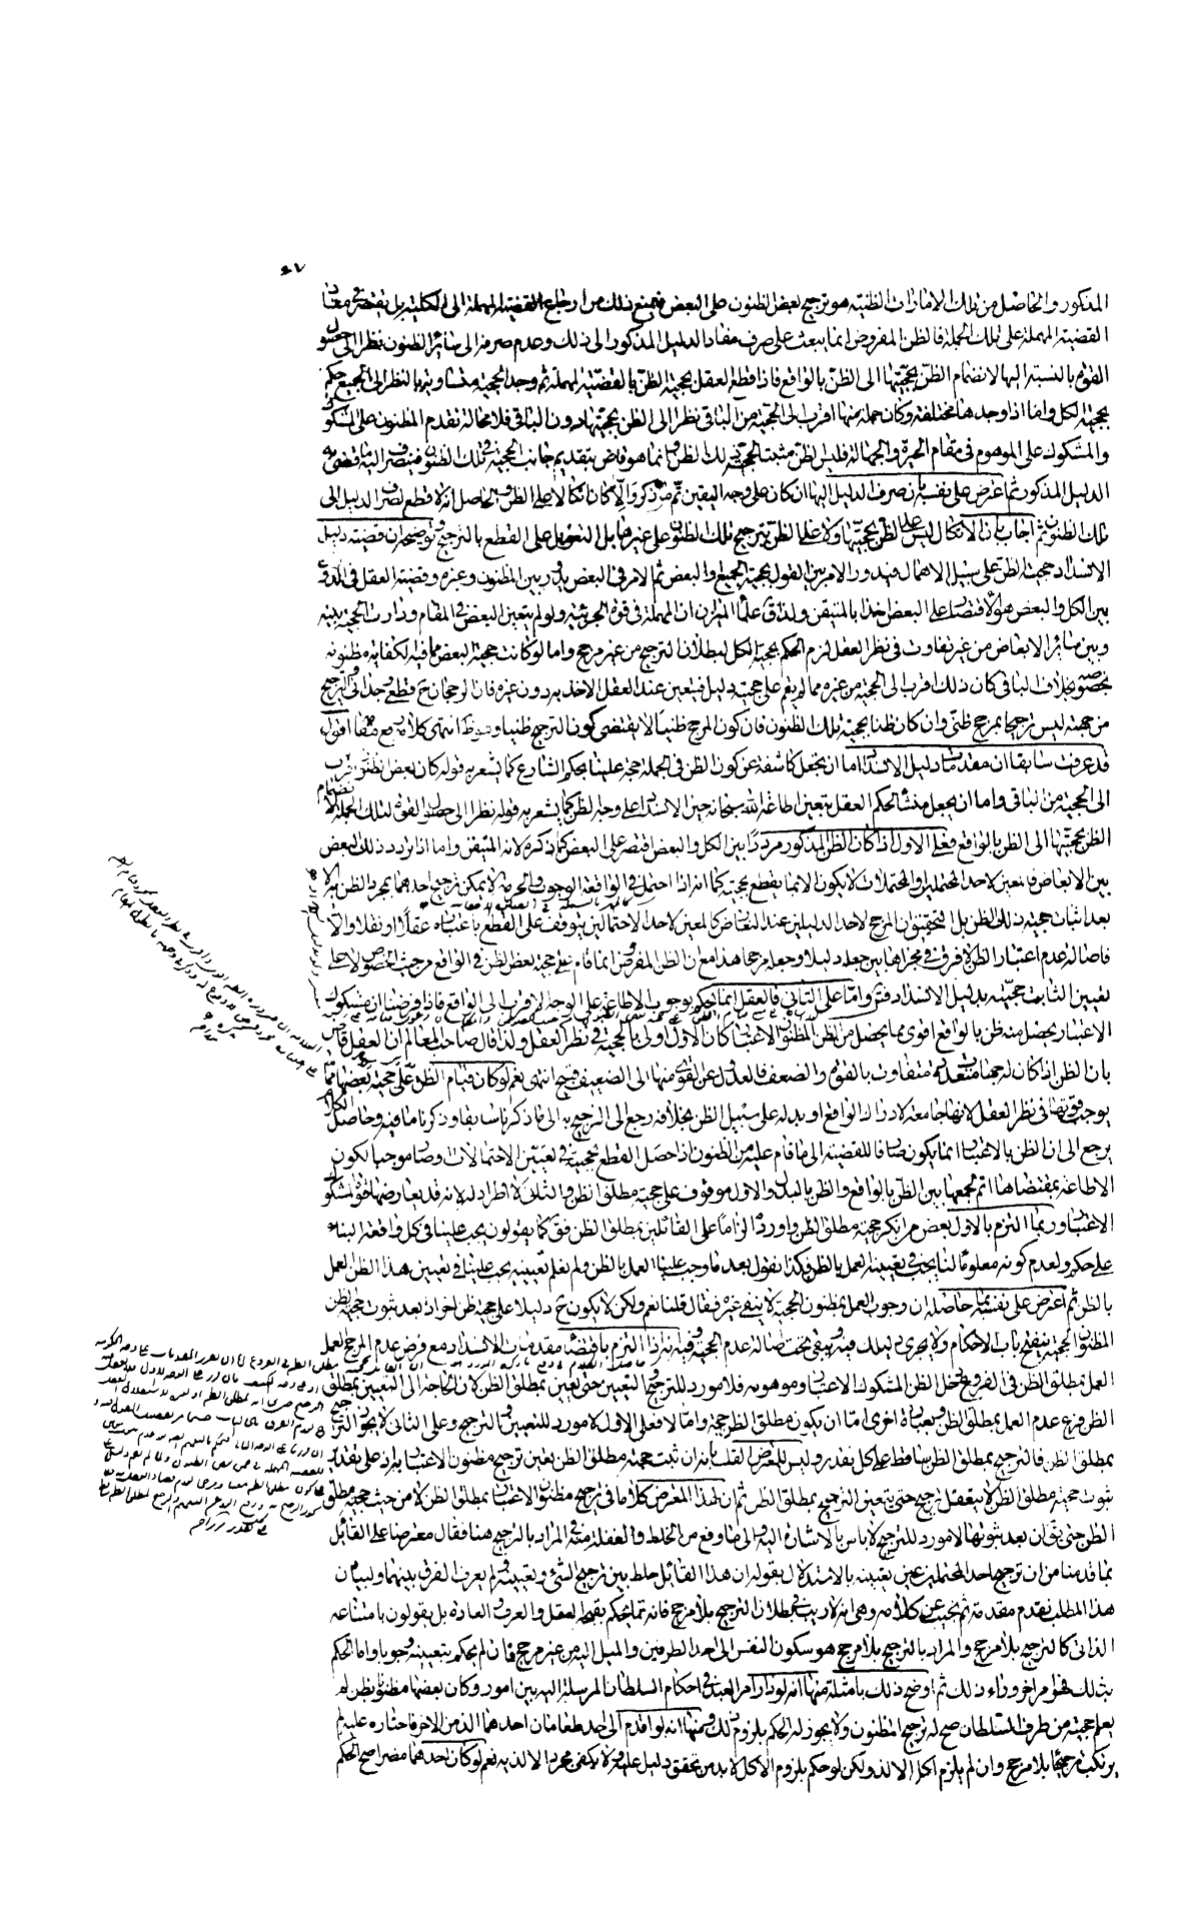 ٤٧
المذكور والحاصل من تلك الامارات الظنية هو ترجيح بعض الظنون على البعض فيمنع ذلك من ارجاع القضية المهملة الى الكلية بل يقتصر في مفاد
القضية المهملة على تلك الجملة فالظن المفروض انما يبعث على صرف مفاد الدليل المذكور الى ذلك وعدم صرفه الى سائر الظنون نظرا الى حصول
القوة بالنسبة اليها لانضمام الظن بحجيتها الى الظن بالواقع فاذا قطع العقل بحجية الظن بالقضية المهملة ثم وجد الحجية متساوية بالنظر الى الجميع حكم
بحجية الكل واما اذا وجدها مختلفة وكان جملة منها اقرب الى الحجية من الباقي نظرا الى الظن بحجيتها دون الباقي فلا محالة تقدم المظنون على المشكوك
والمشكوك على الموهوم في مقام الحيرة والجهالة فليس الظن مثبتا لحجية ذلك الظن وانما هو قاض بتقديم جانب الحجية في تلك الظنون فينصرف اليه ما قضى به
الدليل المذكور ثم اعترض على نفسه بان صرف الدليل اليها ان كان على وجه اليقين تم ما ذكر والا كان اتكالا على الظن والحاصل انه لا قطع لصرف الدليل الى
تلك الظنون ثم اجاب بان الاتكال ليس على الظن بحجيتها ولا على الظن بترجيح تلك الظنون على غيرها بل التعويل على القطع بالترجيح وتوضيحه ان قضية دليل
الانسداد حجية الظن على سبيل الاهمال فيدور الامر بين القول بحجية الجميع والبعض ثم الامر في البعض يدور بين المظنون وغيره وقضية العقل في الدوران
بين الكل والبعض هو الاقتصار على البعض اخذا بالمتيقن ولذا قال علماء الميزان ان المهملة في قوة الجزئية ولو لم يتعين البعض في المقام ودارت الحجية بينه
وبين سائر الابعاض من غير تفاوت في نظر العقل لزم الحكم بحجية الكل لبطلان الترجيح من غير مرجح واما لو كانت حجية البعض مما فيه الكفاية مظنونة
بخصوصه بخلاف الباقي كان ذلك اقرب الى الحجية من غيره مما لم يقم على حجيته دليل فيتعين عند العقل الاخذ به دون غيره فان الرجحان ح قطعي وجداني والترجيح
من جهته ليس ترجيحا بمرجح ظني وان كان ظنا بحجية تلك الظنون فان كون المرجح ظنيا لا يقتضي كون الترجيح ظنيا وهو ظ انتهى كلامه رفع مقامه اقول
قد عرفت سابقا ان مقدمات دليل الانسداد اما ان تجعل كاشفة عن كون الظن في الجملة حجة علينا بحكم الشارع كما يشعر به قوله كان بعض الظنون اقرب
الى الحجية من الباقي واما ان يجعل منشأ لحكم العقل بتعين اطاعة الله سبحانه حين الانسداد على وجه الظن كما يشعر به قوله نظرا الى حصول القوة لتلك الجملة لانضمام
الظن بحجيتها الى الظن بالواقع فعلى الاول اذا كان الظن المذكور مرددا بين الكل والبعض اقتصر على البعض كما ذكره لانه المتيقن واما اذا تردد ذلك البعض
بين الابعاض فالمعين لاحد المحتملين او المحتملات لا يكون الا بما يقطع بحجيته كما انه اذا احتمل في الواقعة الوجوب والحرمة لا يمكن ترجيح احدهما بمجرد الظن به الا
بعد اثبات حجية ذلك الظن بل التحقيق ان المرجح لاحد الدليلين عند التعارض كالمعين لاحد الاحتمالين يتوقف على القطع باعتباره عقلا او نقلا والا
فاصالة عدم اعتبار الظن لا فرق في مجراها بين جعله دليلا وجعله مرجحا هذا مع ان الظن المفروض انما قام على حجية بعض الظن في الواقع من حيث الخصوص لا على
تعيين الثابت حجيته بدليل الانسداد فتدبر واما على الثاني فالعقل انما يحكم بوجوب الاطاعة على الوجه الاقرب الى الواقع فاذا فرضنا ان مشكوك
الاعتبار يحصل منه ظن بالواقع اقوى مما يحصل من الظن المظنون الاعتبار كان الاول اولى بالحجية في نظر العقل ولذا قال صاحب المعالم ان العقل قاض
بان الظن اذا كان له جهات متعددة متفاوت بالقوة والضعف فالعدول عن القوي منها الى الضعيف قبيح انتهى نعم لو كان قيام الظن على حجية بعضها مما
يوجب قوتها في نظر العقل لانها جامعة لادراك الواقع او بدله على سبيل الظن بخلافه رجع الى الترجيح به الى ما ذكرنا سابقا وذكرنا ما فيه وحاصل الكلام
يرجع الى ان الظن بالاعتبار انما يكون صارفا للقضية الى ما قام عليه من الظنون اذا حصل القطع بحجيته في تعيين الاحتمالات وصار موجبا لكون
الاطاعة بمقتضاها اتم لجمعها بين الظن بالواقع والظن بالبدل والاول موقوف على حجية مطلق الظن والثاني لا اطراد له لانه قد يعارضها قوة المشكوك
الاعتبار وربما التزم بالاول بعض من انكر حجية مطلق الظن واورده الزاما على القائلين بمطلق الظن فقال كما يقولون يجب علينا في كل واقعة البناء
على حكم ولعدم كونه معلوما لنا يجب في تعيينه العمل بالظن فكذا نقول بعد ما وجب علينا العمل بالظن ولم نعلم تعيينه يجب علينا في تعيين هذا الظن العمل
بالظن ثم اعترض على نفسه بما حاصله ان وجوب العمل بمظنون الحجية لا ينفي غيره فقال قلنا نعم ولكن لا يكون ح دليلا على حجية ظن اخر اذ بعد ثبوت حجية الظن
المظنون الحجية ينفتح باب الاحكام ولا يجري دليلك فيه ويبقى تحت اصالة عدم الحجية وفيه انه اذا التزم باقتضاء مقدمات الانسداد مع فرض عدم المرجح العمل
العمل بمطلق الظن في الفروع دخل الظن المشكوك الاعتبار وموهومه فلا مورد للترجيح والتعيين حتى يعين بمطلق الظن لان الحاجة الى التعيين بمطلق
الظن فرع عدم العمل بمطلق الظن وبعبارة اخرى اما ان يكون مطلق الظن حجة واما لا فعلى الاول لا مورد للتعيين والترجيح وعلى الثاني لا يجوز الترجيح
بمطلق الظن فالترجيح بمطلق الظن ساقط على كل تقدير وليس للمعترض القلب بانه ان ثبت حجية مطلق الظن تعين ترجيح مظنون الاعتبار به اذ على تقدير
ثبوت حجية مطلق الظن لا يتعقل ترجيح حتى يتعين الترجيح بمطلق الظن ثم ان لهذا المعترض كلاما في ترجيح مظنون الاعتبار بمطلق الظن لا من حيث حجية مطلق
الظن حتى يقال ان بعد ثبوتها لا مورد للترجيح لا باس بالاشارة اليه والى ما وقع من الخلط والغفلة منه في المراد بالترجيح هنا فقال معترضا على القائل
بما قدمنا من ان ترجيح احد المحتملين عين تعيينه بالاستدلال بقوله ان هذا القائل خلط بين ترجيح الشيء وتعيينه ولم يعرف الفرق بينهما ولبيان
هذا المطلب نقدم مقدمة ثم نجيب عن كلامه وهي انه لا ريب في بطلان الترجيح بلا مرجح فانه مما يحكم بقبحه العقل والعرف والعادة بل يقولون بامتناعه
الذاتي كالترجح بلا مرجح والمراد بالترجيح بلا مرجح هو سكون النفس الى احد الطرفين والميل اليه من غير مرجح وان لم يحكم بتعيينه وجوبا واما الحكم
بذلك فهو امر اخر وراء ذلك ثم اوضح ذلك بامثلة منها انه لو دار امر العبد في احكام السلطان المرسلة اليه بين امور وكان بعضها مظنونا بظن لم
يعلم حجيته من طرف السلطان صح له ترجيح المظنون ولا يجوز له الحكم بلزوم ذلك ومنها انه لو اقدم الى احد طعامان احدهما الذ من الاخر فاختاره عليه لم
يرتكب ترجيحا بلا مرجح وان لم يلزم اكل الالذ ولكن لو حكم بلزوم الاكل لا بد من تحقق دليل عليه ولا يكفي مجرد الالذية نعم لو كان احدهما مضرا صح الحكم